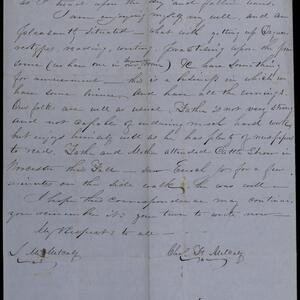 as I tread upon the dry and fallen leaves.
I am enjoying myself very well, and am
pleasantly situated – what with getting up Daguer-
reotypes, reading, writing, & practising upon the
some (we have one in town) I have something
for amusement – this is a business in which we
have some and have all the evenings.
Our folks are well as usual. Father is not very strong
and not capable of enduring much hard work,
but enjoys himself well as he has plenty of newspapers
to read. Father and Mother attended Cattle Show in
Worcester this Fall – saw for a few
minutes on the side walk; he was well –
I hope this correspondence may continue,
you remember it is your turn to write now –
My Respects to all –
J. M. Metcalf Chas. H. Metcalf